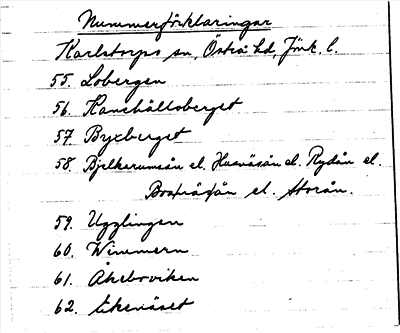 Nummerförklaringar
Karlstorps sn, Östra hd, Jönk. l.
55. Lobergen
56. Kanehällsberget.
57. Byxberget
58. Bjelkerumsån el. Husnäsån el. Rydån el.
el. Storån.
59. Ugglingen
60. Wimmern
61. Åkeboviken
62. Ekenäset